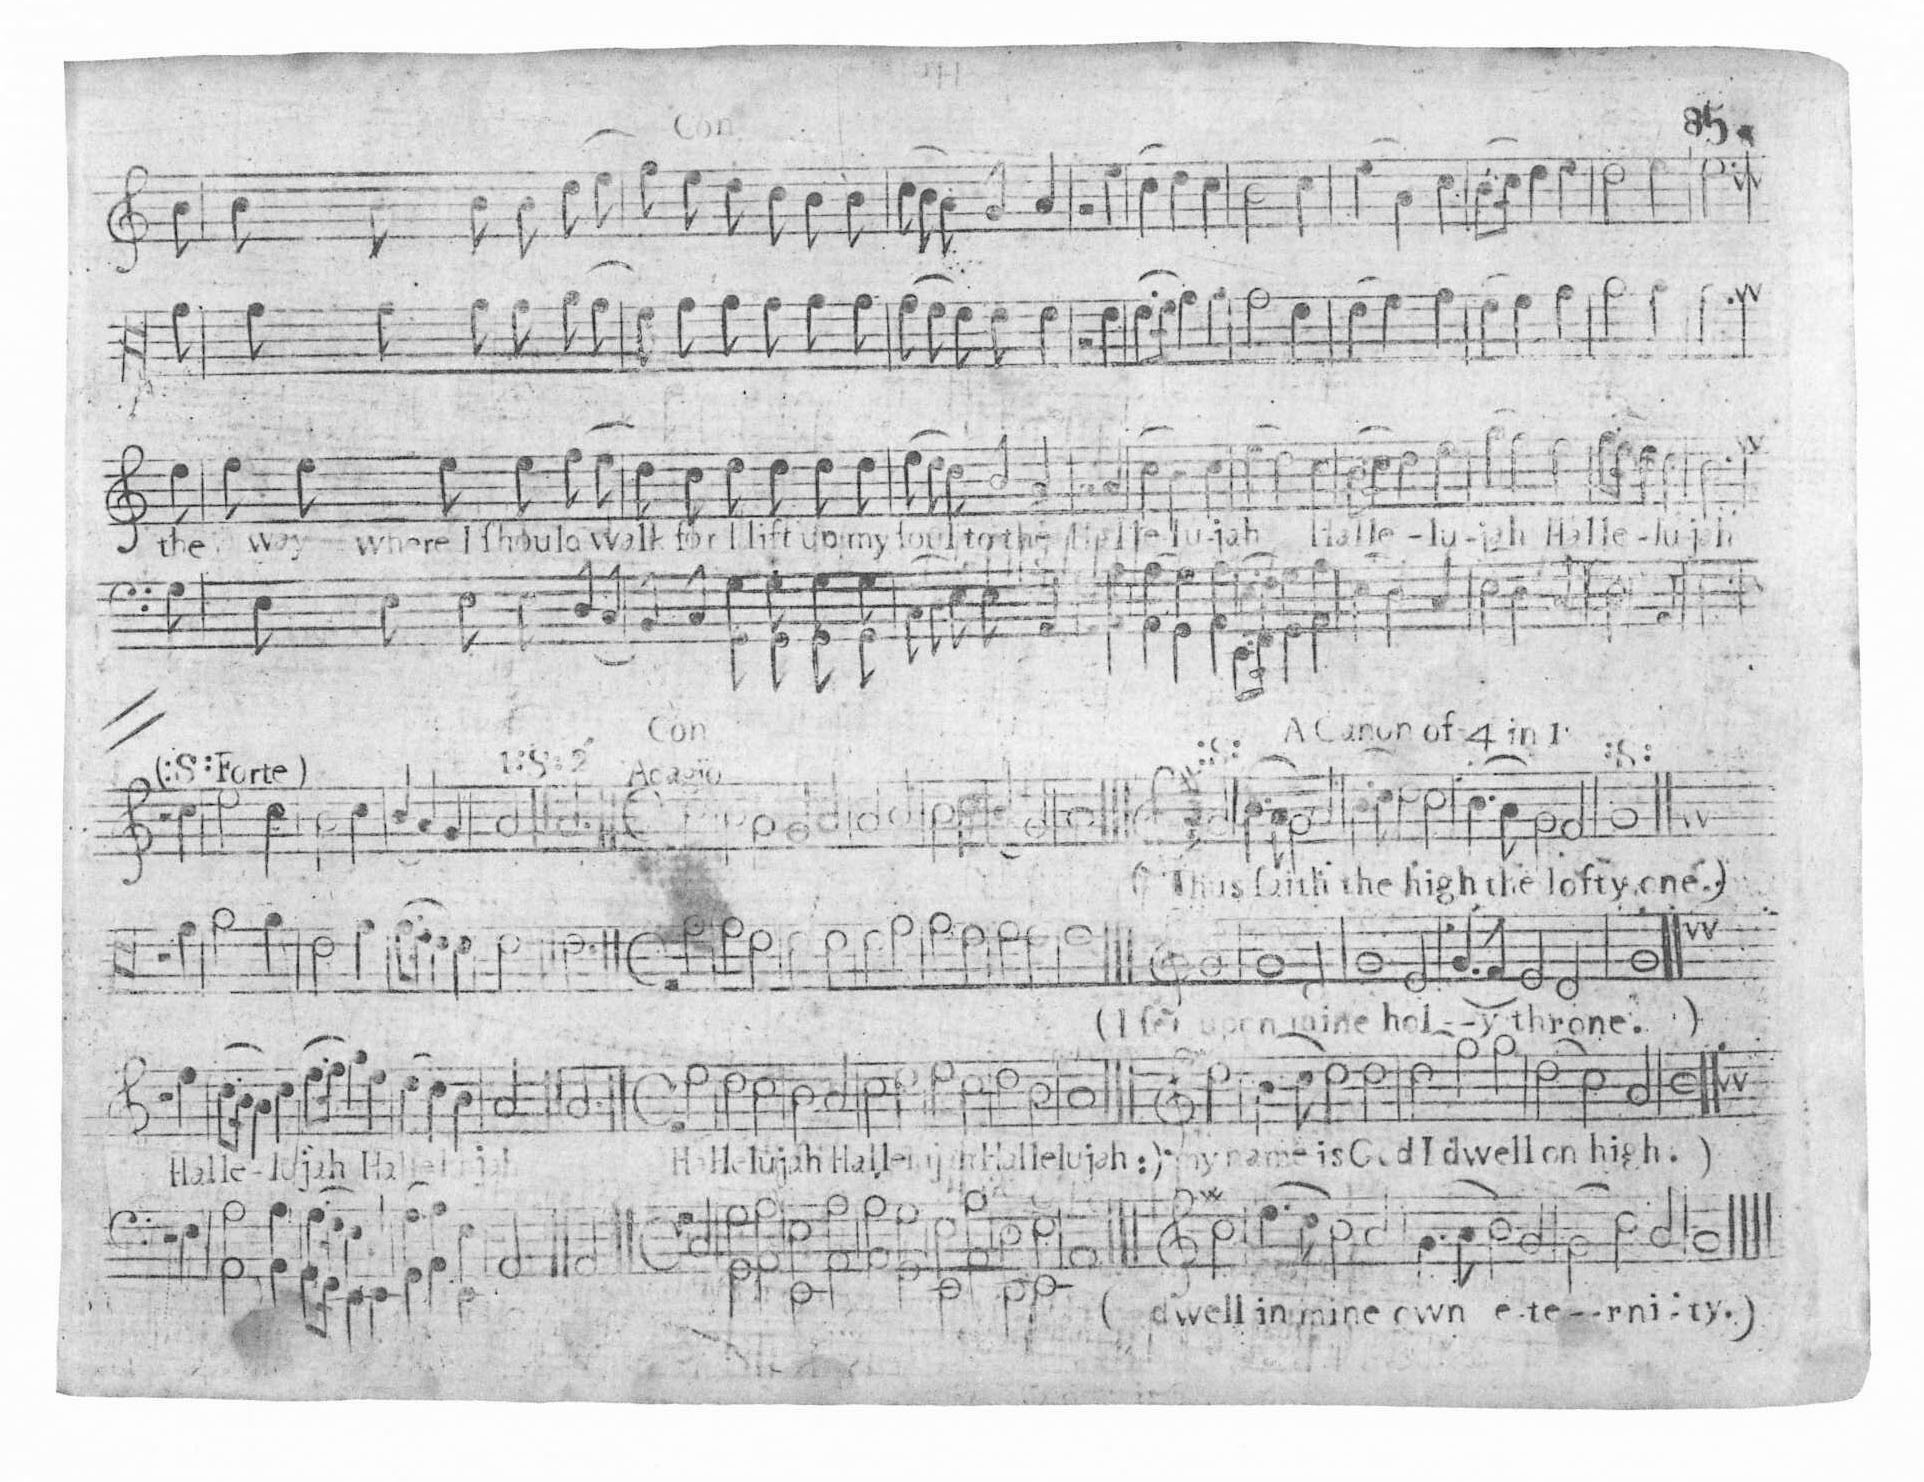 85.
Con
the way where I ſhould walk for I lift up my ſoul to the Halle-lu-jah Halle-lu-jah Halle-lu-jah
Con
A Canon of 4 in 1.
(:S:Forte) 1:S:2 Adagio :S: :S:
(Thus ſaith the high the lofty one.)
(I ſet upon mine hol--y throne.)
Halle-lujah Hallelujah Hallelujah Hallelujah Hallelujah:) my name is God I dwell on high.)
( dwell in mine own e-te--rni-ty.)